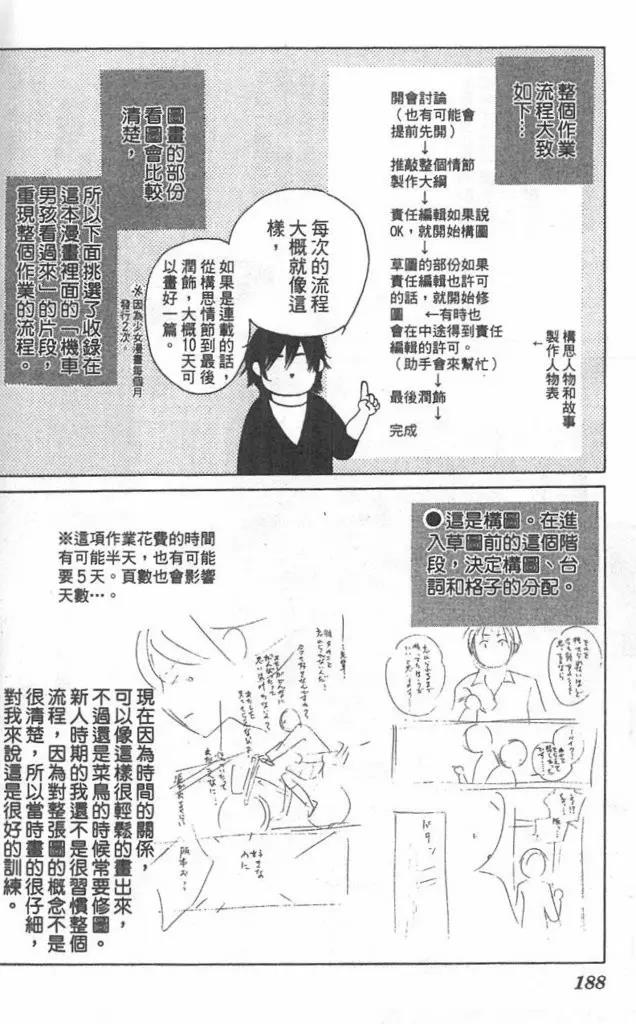 整個作業
流程大致
如下…
開會討論
（也有可能會
提前先開）
↓
推敲整個情節
製作大綱
↓
責任編輯如果說
OK，就開始構圖
↓
草圖的部份如果
責任編輯也許可
的話，就開始修
圖　←有時也
會在中途得到責任
編輯的許可。
（助手會來幫忙）
↓
最後潤飾
↓
完成
構思人物和故事
製作人物表
←
每次的流程
大概就像這
樣，
如果是連載的話，
從構思情節到最後
潤飾，大概10天可
以畫好一篇。
※因為少女漫畫每個月
發行2次。
圖畫的部份
看圖會比較
清楚，
所以下面挑選了收錄在
這本漫畫裡面的「機車
男孩看過來」的片段，
重現整個作業的流程。
●這是構圖。在進
入草圖前的這個階
段，決定構圖、台
詞和格子的分配。
※這項作業花費的時間
有可能半天，也有可能
要5天。頁數也會影響
天數…。
ドタン
好きな
のに
現在因為時間的關係，
可以像這樣很輕鬆的畫出來，
不過還是菜鳥的時候常要修圖。
新人時期的我還不是很習慣整個
流程，因為對整張圖的概念不是
很清楚，所以當時畫的很仔細，
對我來說這是很好的訓練。
188